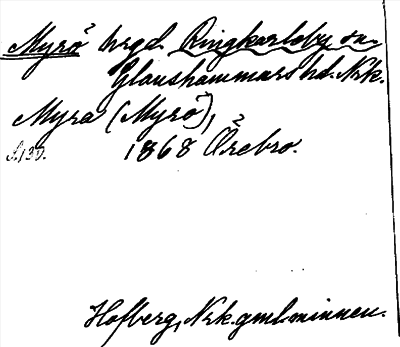 Myrö hrgd. Ringkarleby sn.
Glanshammars hd. Nrk.
Myra (Myrö),
S. 130. 1868 Örebro.
Hofberg, Nrk. gml. minnen.